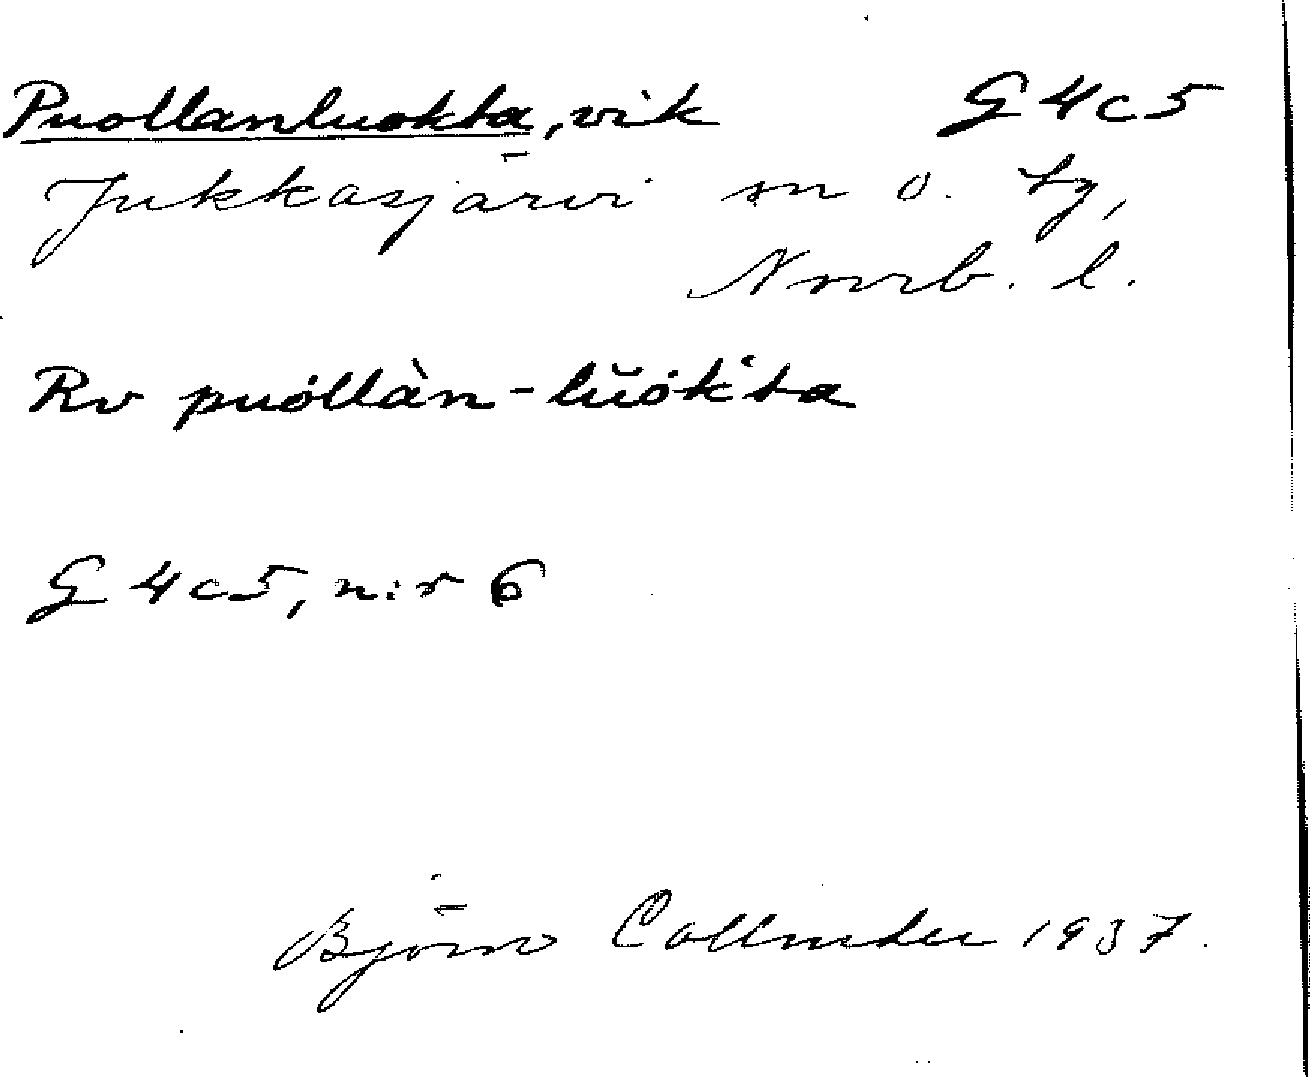 Puollanluokta, vik G4c5
Jukkasjärvi sn o. tg,
Norrb. l.
Rv puȯllàn-lŭȯk'ta
G4c5, n:r 6
Björn Collinder 1937.